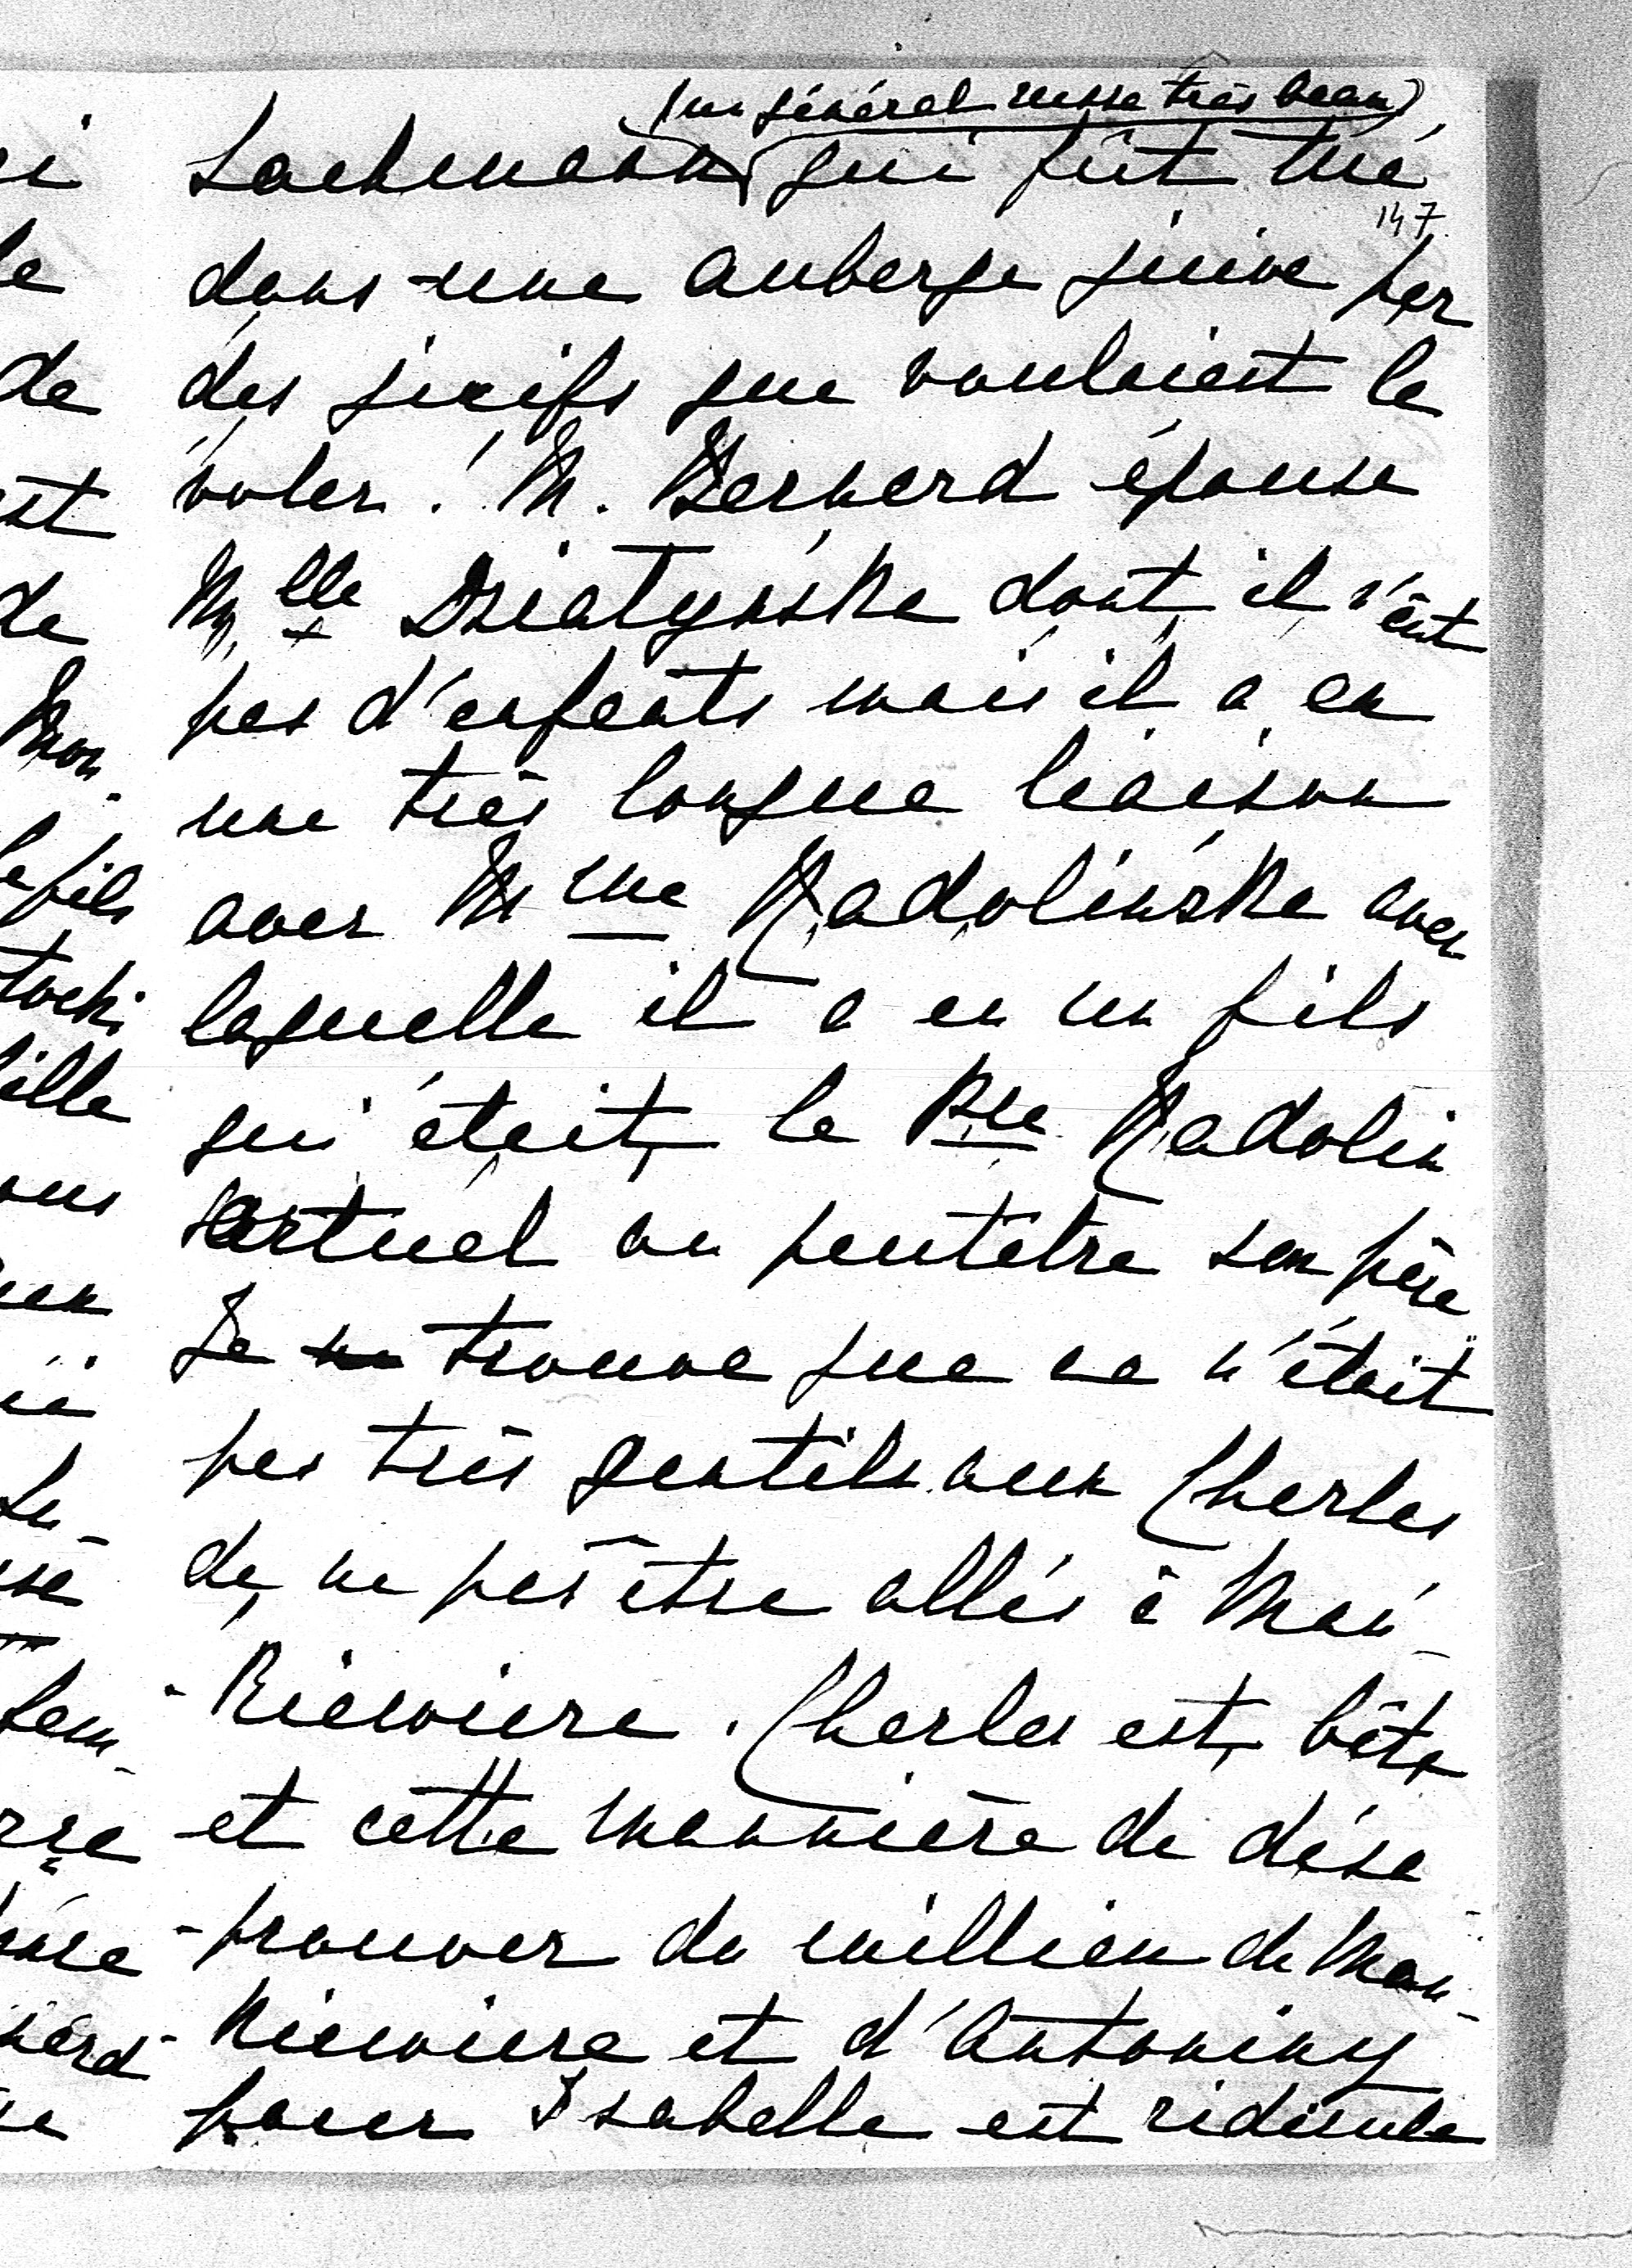 (un général russe très beau)
Lachmann qui fût tué
147
dans une auberge juive par
des juifs que voulaient le
voler. M. Bernard épouse
Mlle Dziatynska dont il n'eût
pas d'enfants mais il a eu
une très longue liaison
avec Mme Radolinska avec
laquelle il a eu un fils
qui était le Pce Radolin
actuel ou peutêtre son père
Je ne trouve que ce n'était
pas très gentils aux Charles
de ne pas être allés à Mań-
-kiewicze. Charles est bête
et cette mannière de désa
-prouver du millieu de Mań-
-kiewicze et d'Antoniny
pour Isabelle est ridicule
i
le
de
est
de
Mon.
le fils
tocki
fille
ous